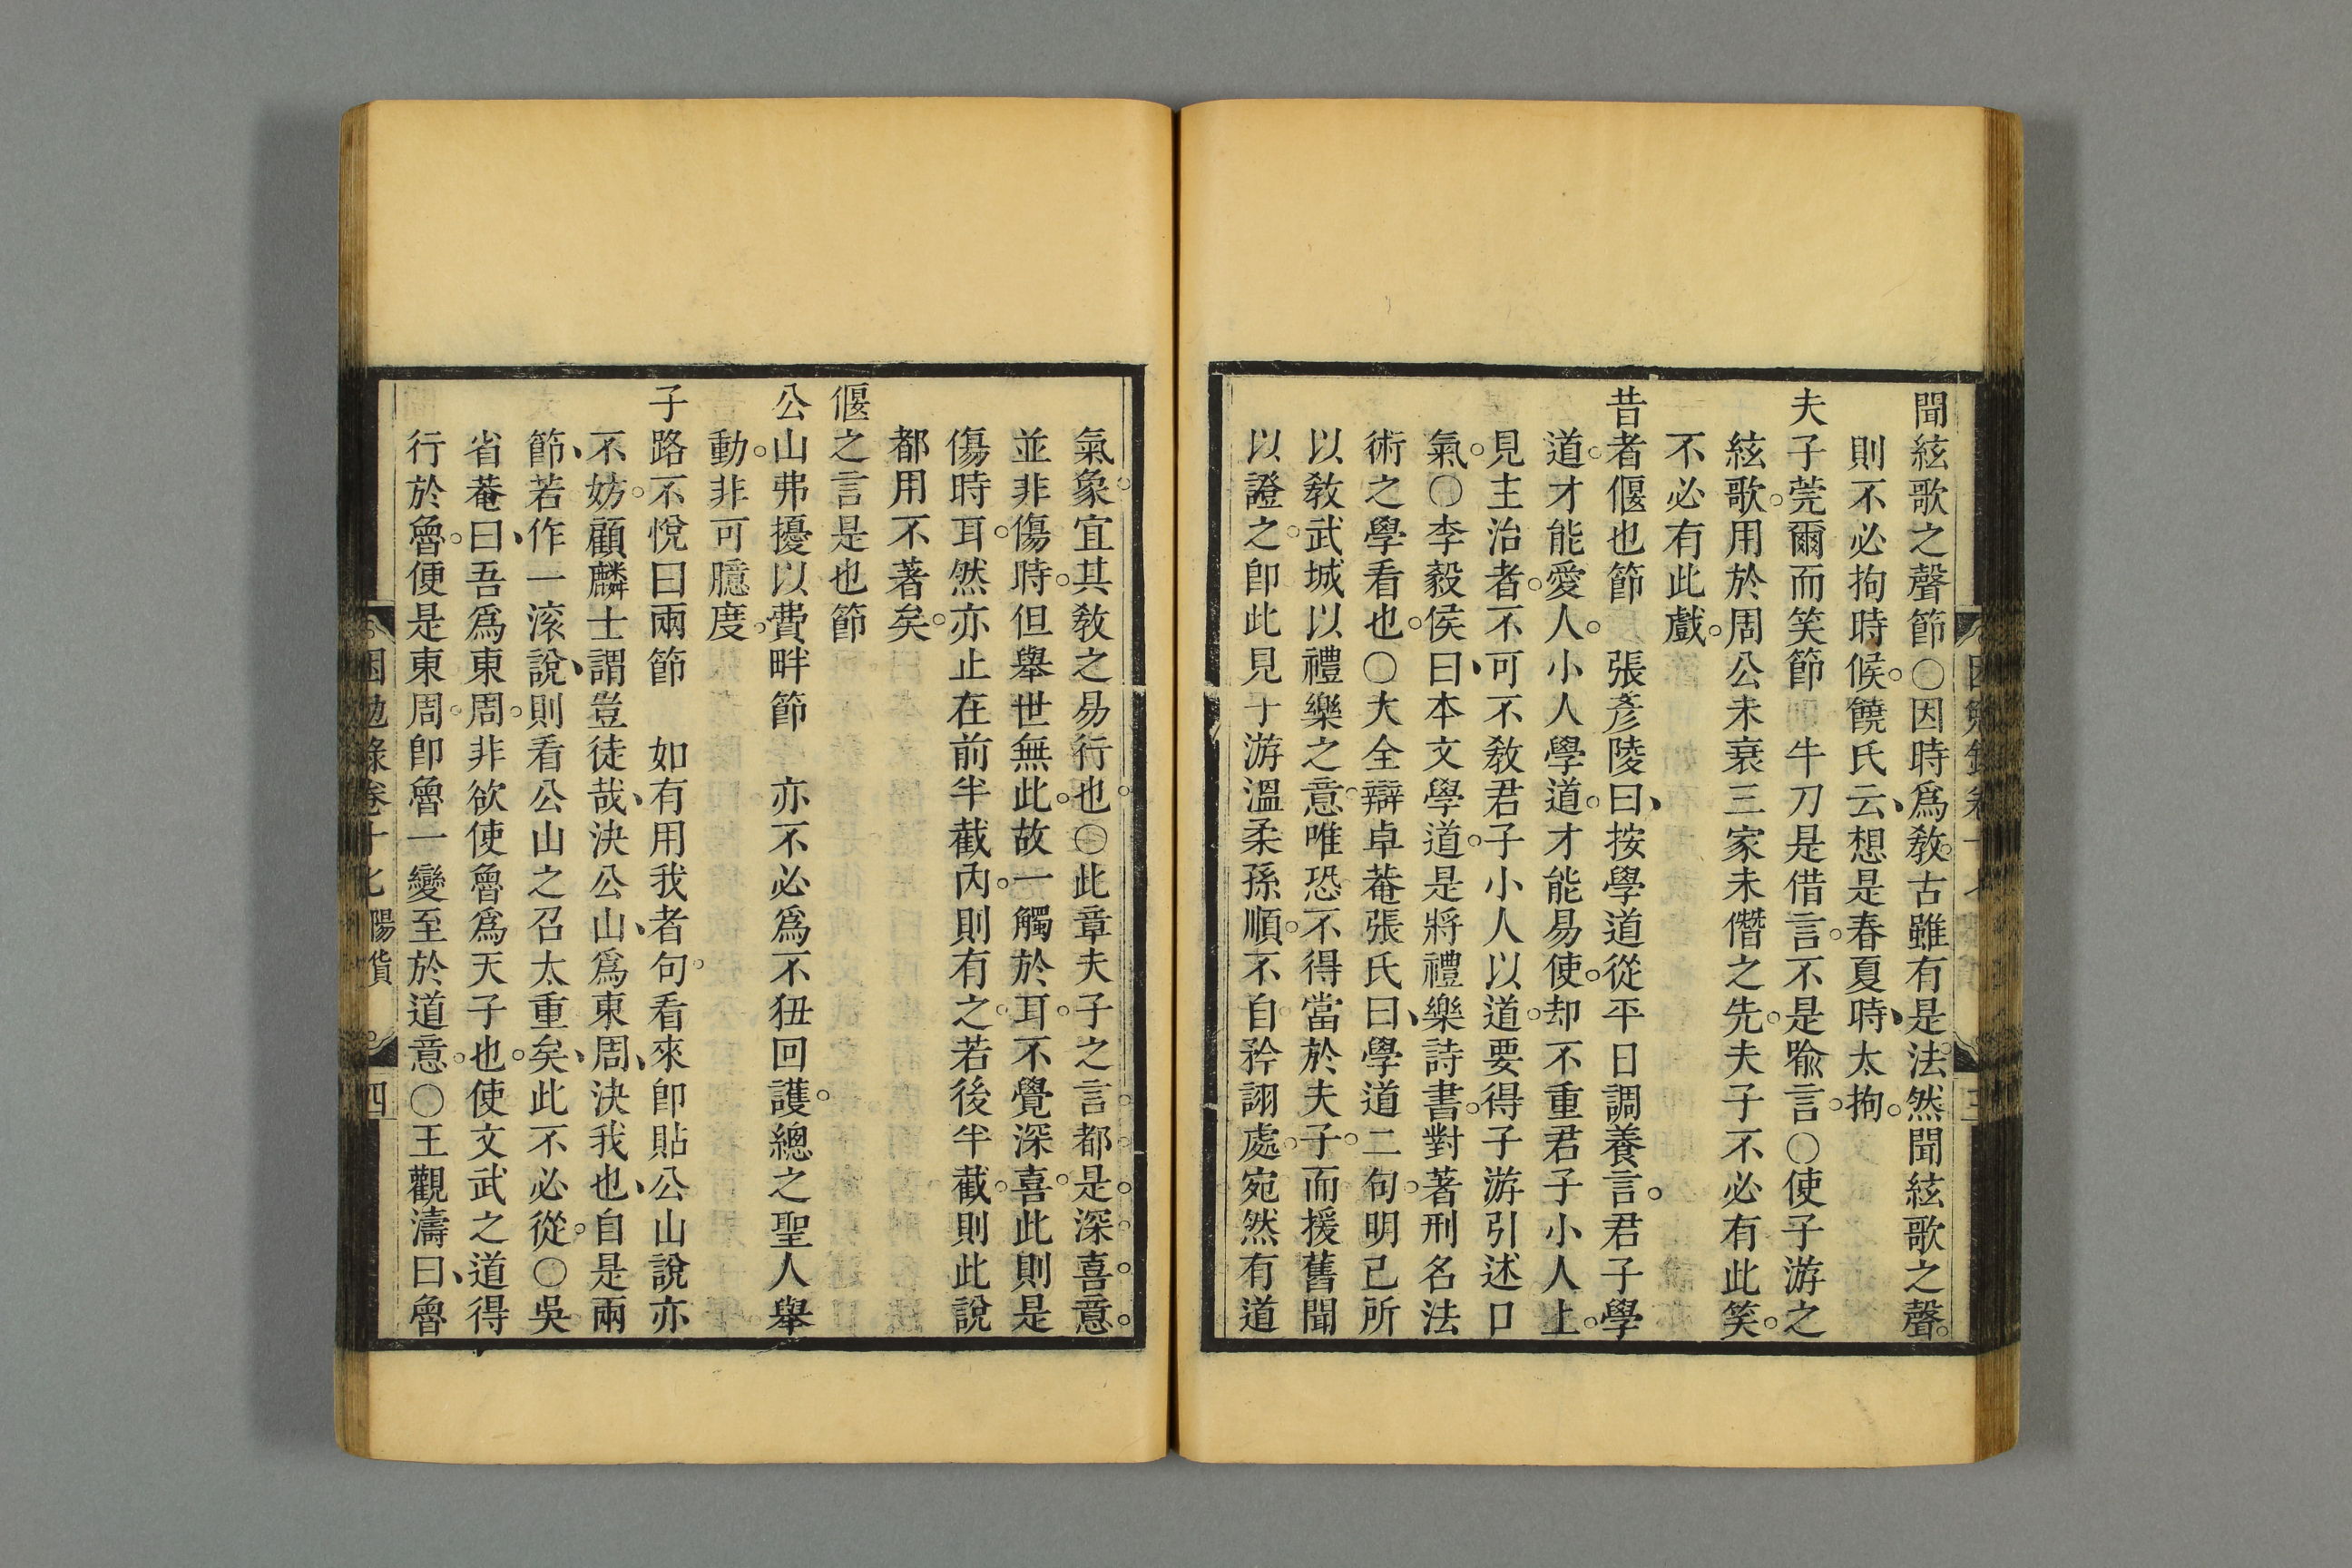 聞絃歌之聲節〇因時爲敎古雖有是法然聞絃歌之聲
則不必拘時候饒氏云想是春夏時太拘
夫子莞爾而笑節　牛刀是借言不是喩言〇使子游之
絃歌用於周公未衰三家未僭之先夫子不必有此笑
不必有此戲
昔者偃也節　張彥陵曰按學道從平日調養言君子學
道才能愛人小人學道才能易使却不重君子小人上
見主治者不可不敎君子小人以道要得子游引述口
氣〇李毅侯曰本文學道是將禮樂詩書對著刑名法
術之學看也〇大全辯卓菴張氏曰學道二句明己所
以敎武城以禮樂之意唯恐不得當於夫子而援舊聞
以證之卽此見子游溫柔孫順不自矜詡處宛然有道
氣象宜其敎之易行也〇此章夫子之言都是深喜意
並非傷時但舉世無此故一觸於耳不覺深喜此則是
傷時耳然亦止在前半截內則有之若後半截則此說
都用不著矣
偃之言是也節
公山弗擾以費畔節　亦不必爲不狃回護總之聖人舉
動非可臆度
子路不悅曰兩節　如有用我者句看來卽貼公山說亦
不妨顧麟士謂豈徒哉決公山爲東周決我也自是兩
節若作一滚說則看公山之召太重矣此不必從〇吳
省菴曰吾爲東周非欲使魯爲天子也使文武之道得
行於魯便是東周卽魯一變至於道意〇王觀濤曰魯
困勉錄卷十七　陽貨　四